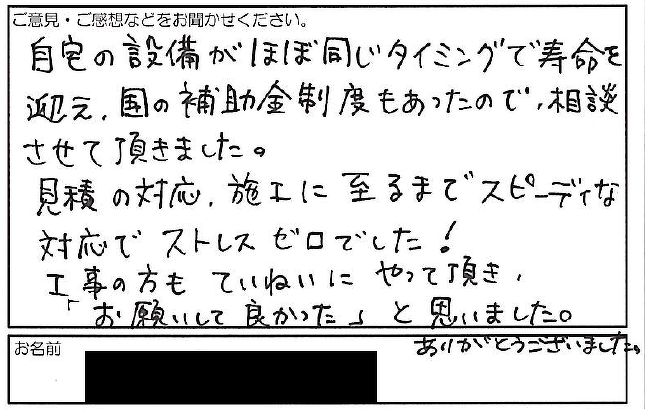 ご意見・ご感想などをお聞かせください。
自宅の設備がほぼ同じタイミングで寿命を
迎え、国の補助金制度もあったので、相談
させて頂きました。
見積の対応、施工に至るまでスピーディな
対応でストレスゼロでした!
工事の方もていねいにやって頂き、
「お願いして良かった」と思いました。
ありがとうございました。
お名前